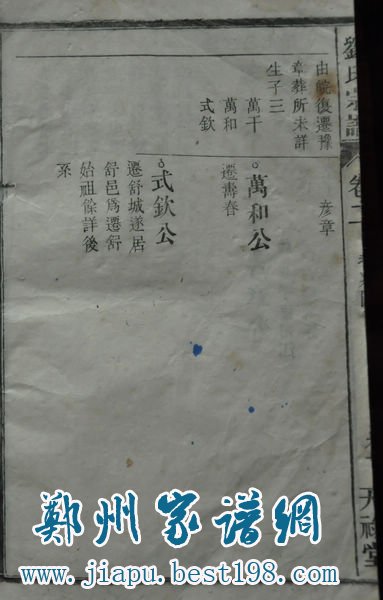 劉氏宗譜
卷二
天祿堂
由皖復遷豫
卒葬所未詳
生子三
萬干
萬和
式欽
彥章
萬和公
遷壽春
式欽公
遷舒城遂居
舒邑爲遷舒
始祖餘詳後
系
鄭州家譜網
www.jiapu.best198.com